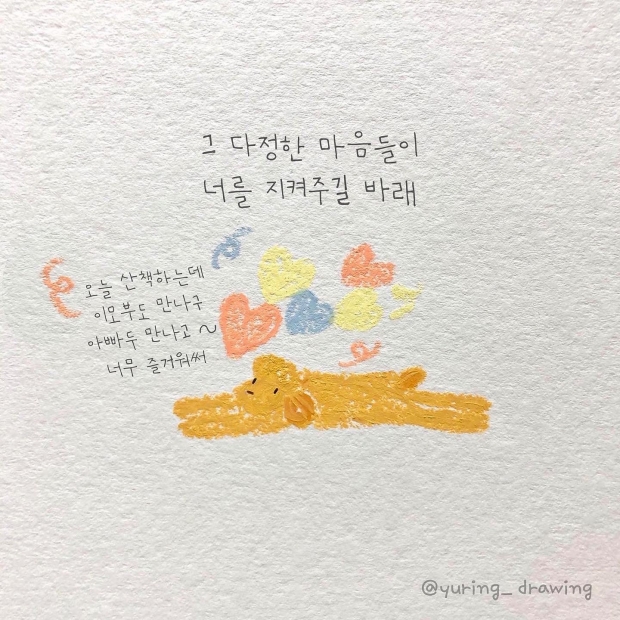 그 다정한 마음들이
너를 지켜주길 바래
오늘 산책하는데
이모부도 만나구
아빠두 만나고 ~
너무 즐거워써
@yuring_ drawing